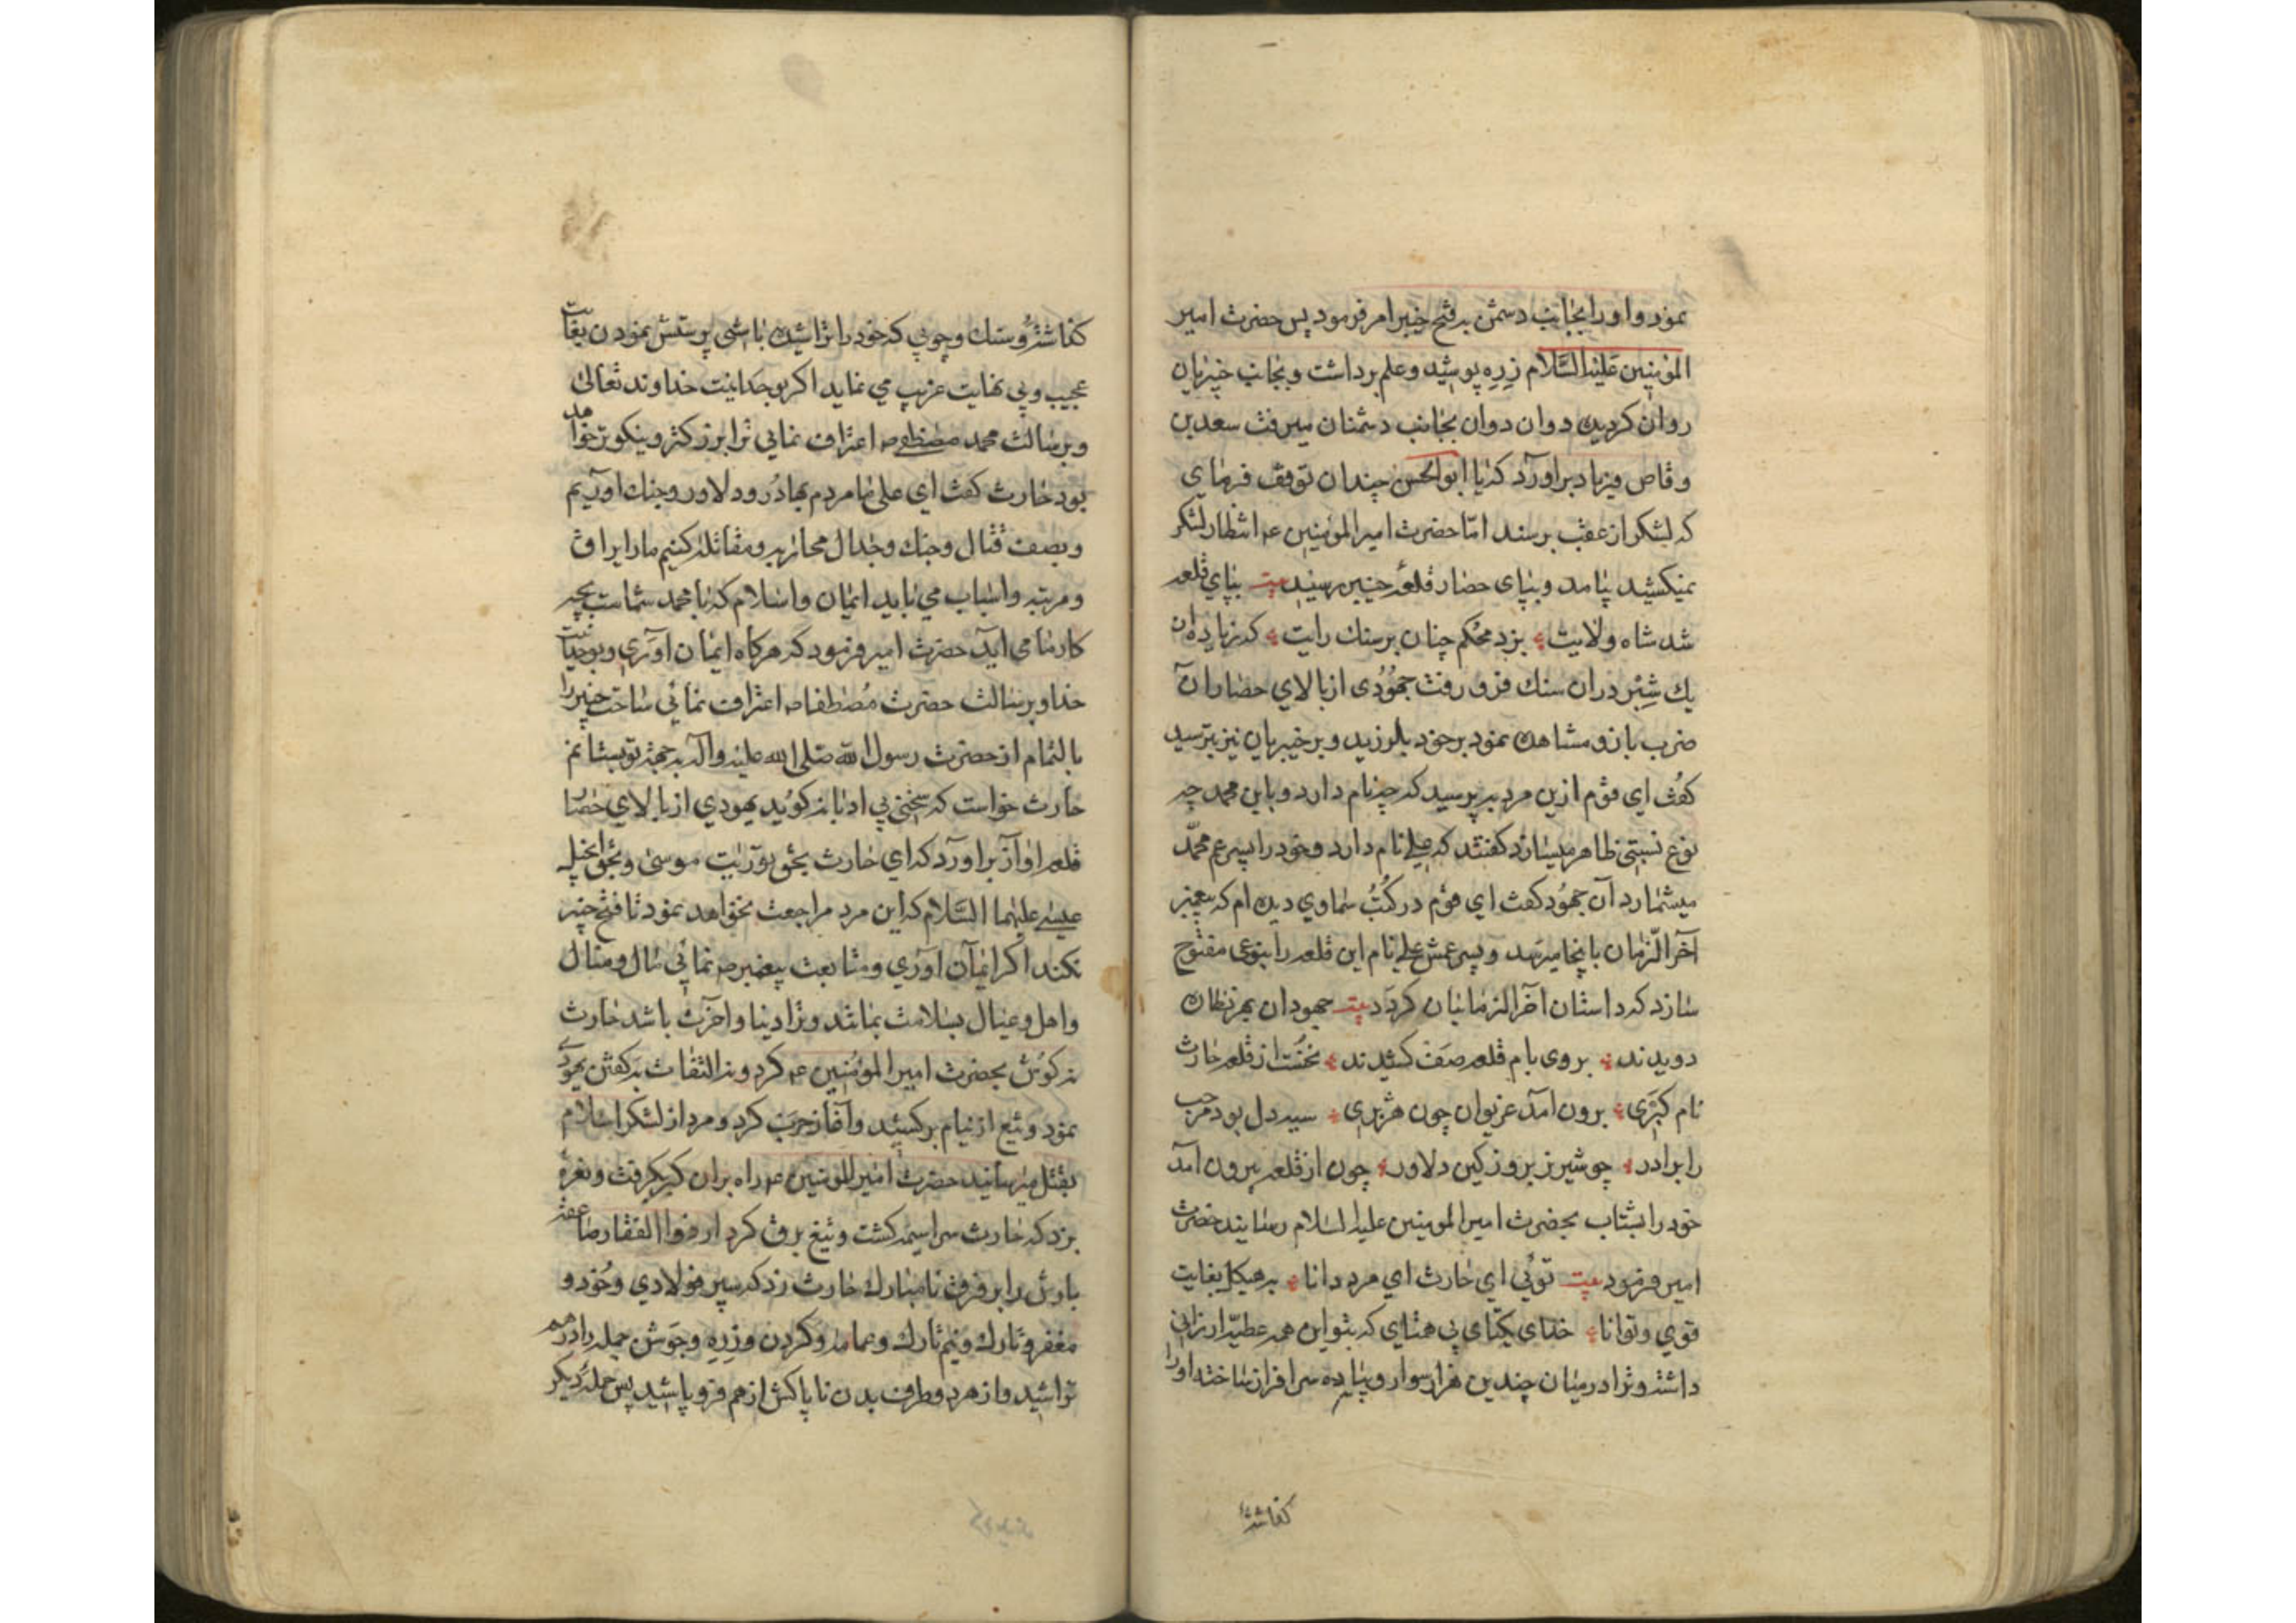 نمود و او را بجانب دشمن بر فتح خیبر امر فرمود پس حضرت امیر
المؤمنین علیه السّلام زره پوشید و علم برداشت و بجانب خیبریان
روان کردید دوان دوان بجانب دشمنان میرفت سعد بن
وقاص فریاد براورد که یا ابوالحسن چندان توقف فرمای
که لشکر از عقب برسند امّا حضرت امیر المومنین ع انتظار لشکر
نمیکشید پیامد و بپای حصار قلعهٔ خیبر رسید بیت بپای قلعه
شد شاه ولایت بزد محکم چنان بر سنك رایت که زیاده از
یك شبر دران سنك فرو رفت جهودی از بالای حصار آن
ضرب بازو مشاهده نمود بر خود بلرزید و بر خیبریان نیز بترسید
کفت ای قوم ازین مرد بپرسید که چه نام دارد و باین محمد چه
نوع نسبتی ظاهر میسازد کفتند که علی نام دارد و خود را پسر عم محمّد
میشمارد آن جهود کفت ای قوم در کتب سماوی دیده ام که پیغمبر
آخر الزّمان باینجا میرسد و پسر عمش علی نام این قلعه را بنوعی مفتوح
سازد که داستان آخر الزمانیان کردد بیت جهودان بهر نظاره
دویدند بروی بام قلعه صف کشیدند نخست از قلعه حارث
نام کبری برون امد غریوان چون هژبری سیه دل بود مرحب
را برادر چو شیر نر بروز کین دلاور چون از قلعه بیرون امد
خود را بشتاب بحضرت امیر المومنین علیه السلام رسانید حضرت
امیر فرمود بیت توئی ای حارث ای مرد دانا بهیکل بغایت
قوی و توانا خدای یکتای بی همتای که بتو این همه عطیّه ارزانی
داشته و ترا در میان چندین هزار سوار و پیاده سرافراز ساخته او را
کفاشته
کفاشته و سنك و چوبی که خود را تراشیده باشی پرستش نمودن بغایت
عجیب و بی نهایت غریب می نماید اکر بوحدانیت خداوند تعالی
و برسالت محمد مصطفی ص اعتراف نمائی ترا بزرکتر و نیکوتر خواهد
بود حارث کفت ای علی ما مردم بهادر و دلاور و جنك اوریم
و بصف قتال و جنك و جدال محاربه و مقاتله کنیم ما را یراق
و مرتبه و اسباب می باید ایمان و اسلام که با محمد شماست بچه
کار ما می آید حضرت امیر فرمود که هرکاه ایمان آوری و بوحدانیت
خدا و برسالت حضرت مصطفا ص اعتراف نمائی ساحت خیبر را
بالتمام از حضرت رسول الله صلی الله علیه و آله بجهة تو بستانم
حارث خواست که سخنی بی ادبانه کوید یهودی از بالای حصار
قلعه اواز براورد که ای حارث بحق توریت موسی و بحق انجیل
عیسی علیهما السّلام که این مرد مراجعت نخواهد نمود تا فتح خیبر
نکند اکر ایمان آوری و متابعت پیغمبر ص نمائی مال و منال
و اهل و عیال بسلامت بماند و ترا دنیا و اخرت باشد حارث
نه کوش بحضرت امیر المؤمنین ع کرد و نه التفات بکفتن یهودی
نمود و تیغ از نیام برکشید و آغاز حرب کرد و مرد از لشکر اسلام
بقتل میرسانید حضرت امیر المومنین ع راه بران کبر بکرفت و نعرهٔ
بزد که حارث سراسیمه کشت و تیغ برق کردار ذوالفقار صاعقه
بارش را بر فرق نامبارك حارث زد که سپر فولادی و خود و
مغفر و تارك و نیم تارك و عمامه و کردن و زره و جوشن جمله را درهم
تراشید و از هر دو طرف بدن ناپاکش از هم فرو پاشید پس حملهٔ دیکر